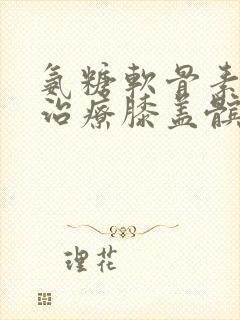 氨糖軟骨素
治療膝蓋髕
理花